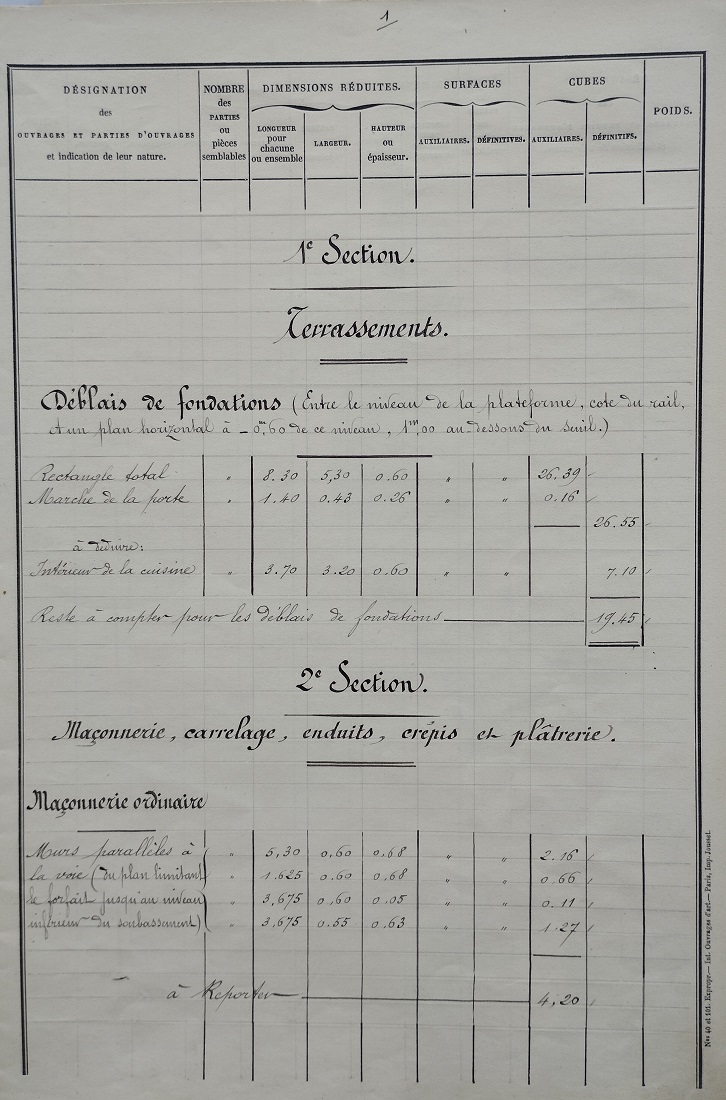 1
DÉSIGNATION
des
OUVRAGES ET PARTIES D'OUVRAGES
et indication de leur nature.
NOMBRE
des
PARTIES
ou
pièces
semblables
DIMENSIONS RÉDUITES.
LONGUEUR
pour
chacune
ou ensemble
LARGEUR.
HAUTEUR
ou
épaisseur.
SURFACES
AUXILIAIRES.
DÉFINITIVES.
CUBES
AUXILIAIRES.
DÉFINITIFS.
POIDS.
1e Section.
Terrassements.
Déblais de fondations (Entre le niveau de la plateforme, cote du rail,
et un plan horizontal à - 0m,60 de ce niveau, 1m,00 au-dessous du seuil.)
Rectangle total " 8.30 5,30 0.60 " " 26.39
Marche de la porte " 1.40 0.43 0.26 " " 0.16
26.55
à déduire:
Intérieur de la cuisine " 3.70 3.20 0.60 " " 7.10
Reste à compter pour les déblais de fondations 19.45
2e Section.
Maçonnerie, carrelage, enduits, crépis et plâtrerie.
Maçonnerie ordinaire
Murs parallèles à " 5,30 0.60 0.68 " " 2.16
la voie (du plan limitant " 1.625 0.60 0.68 " " 0.66
le forfait jusqu'au niveau " 3,675 0,60 0.05 " " 0.11
inférieur du soubassement) " 3,675 0.55 0.63 " " 1.27
à Reporter 4,20
Nos 40 et 101. Expropr.— Int. Ouvrages d'art.— Paris, Imp. Jousset.